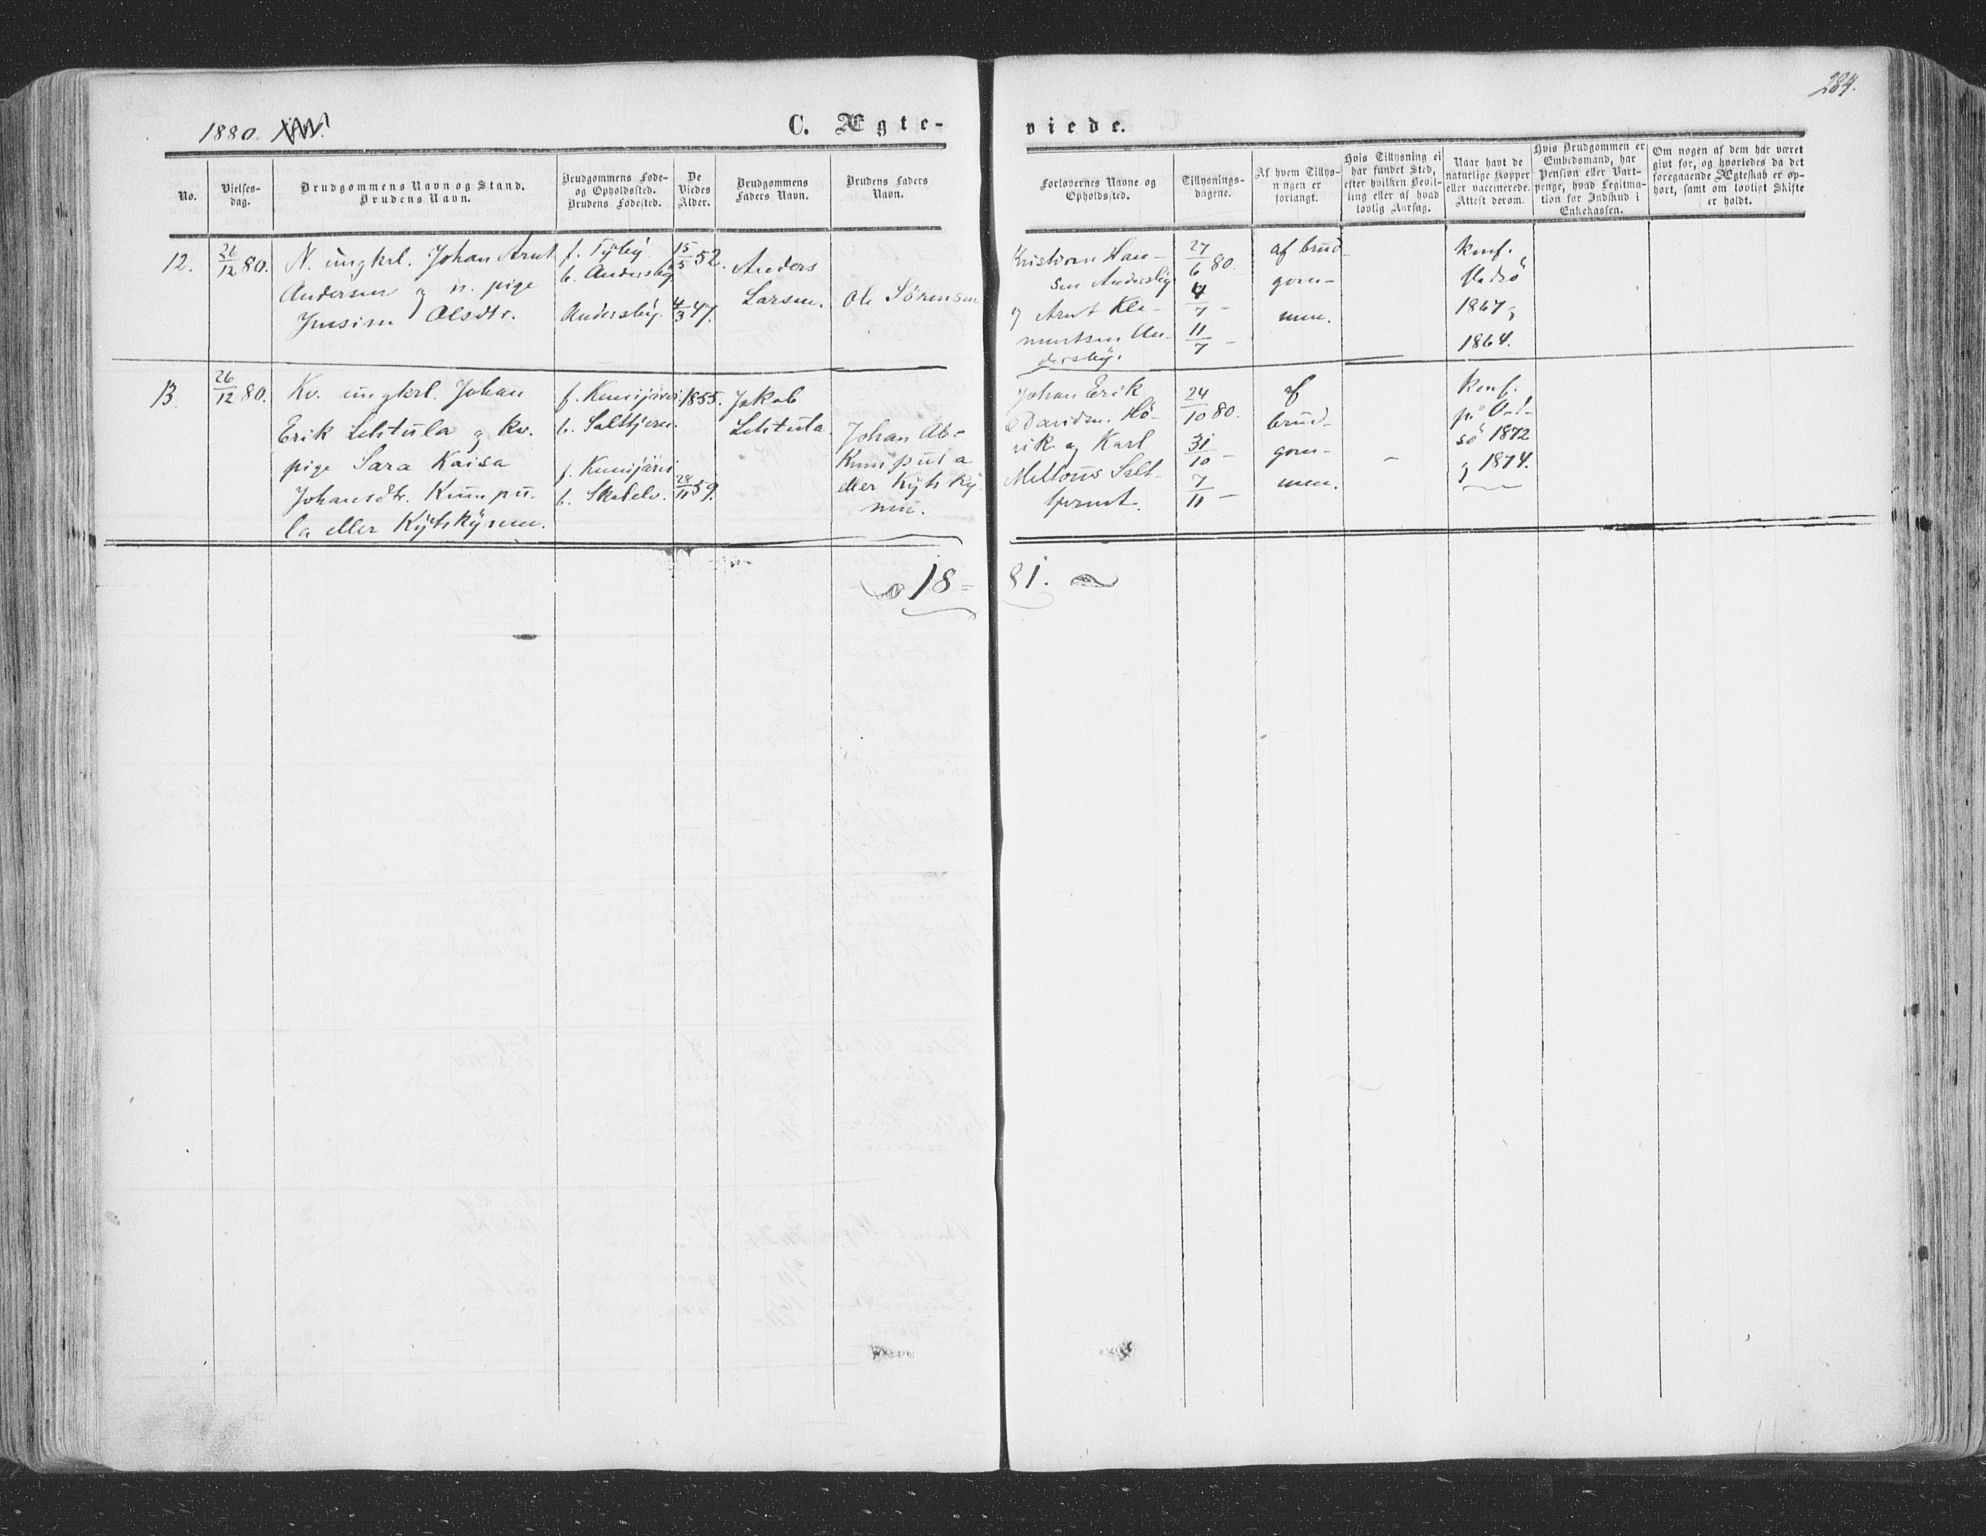 284.
1880.
C. Ægte-
viede.
No.
Vielses-
dag.
Brudgommens Navn og Stand.
Brudens Navn.
Brudgommens Føde-
og Opholdssted.
Brudens Fødested.
De
Viedes
Alder.
Brudgommens
Faders Navn.
Brudens Faders
Navn.
Forlovernes Navne og
Opholdssted.
Tillysnings-
dagene.
Af hvem Tillys-
ningen er
forlangt.
Hvis Tillysning ei
har fundet Sted,
efter hvilken Bevil-
ling eller af hvad
lovlig Aarsag.
Naar havt de
naturlige Kopper
eller vaccinerede.
Attest derom.
Hvis Brudgommen er
Embedsmand, har
Pension eller Vart-
penge, hvad Legitima-
tion for Indskud i
Enkekassen.
Om nogen af dem har været
gift før, og hvorledes da det
foregaaende Ægteskab er op-
hørt, samt om lovligt Skifte
er holdt.
12.
26/12 80.
N. ungkrl. Johan Arnt
Andersen og n. pige
Olsdtr.
f. Tyby
b. Andersby
Andersby.
15/5 52.
4/3 47.
Anders
Larsen.
Ole Sörensen
Kristian Han-
sen Andersby
og Arnt Kle-
mentsen An-
dersby.
27/6 80.
4/7 -
11/7 -
af brud-
gom-
men.
konf.
Vadsö
1867 og
1864.
13
26/12 80.
Kv. ungkrl. Johan
Erik Lehtula og kv.
pige Sara Kaisa
Johansdtr. Kumpu-
la eller Kytskynen.
f. Kemijärvi
b. Saltfjern.
f. Kemijärvi
b. Skalelv.
1855.
28/11 59.
Jakob
Lehtula.
Johan Ab-
Kumpula
eller Kytsky-
nen.
Johan Erik
Davidsen Hö-
vik og Karl
24/10 80.
31/10 -
7/11 -
af
brud-
gom-
men.
-
konf.
på Vad-
sö 1872
og 1874.
18 -
81.